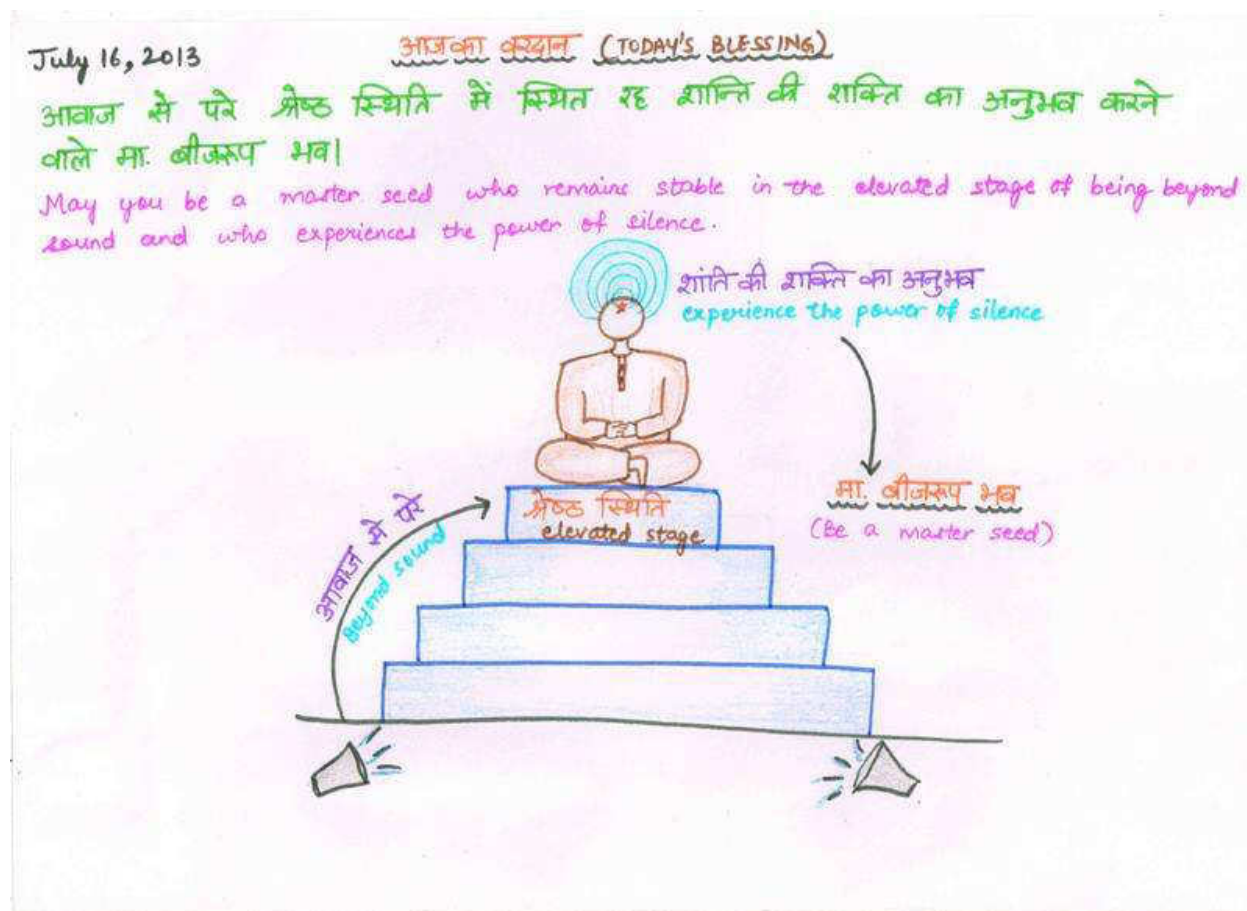 July 16, 2013
आज का वरदान (TODAY'S BLESSING)
आवाज से परे श्रेष्ठ स्थिति में स्थित रह शान्ति की शक्ति का अनुभव करने
वाले मा. बीजरूप भव।
May you be a master seed who remains stable in the elevated stage of being beyond
sound and who experiences the power of silence.
शांति की शक्ति का अनुभव
experience the power of silence
मा. बीजरूप भव
(Be a master seed)
श्रेष्ठ स्थिति
elevated stage
आवाज से परे
Beyond sound